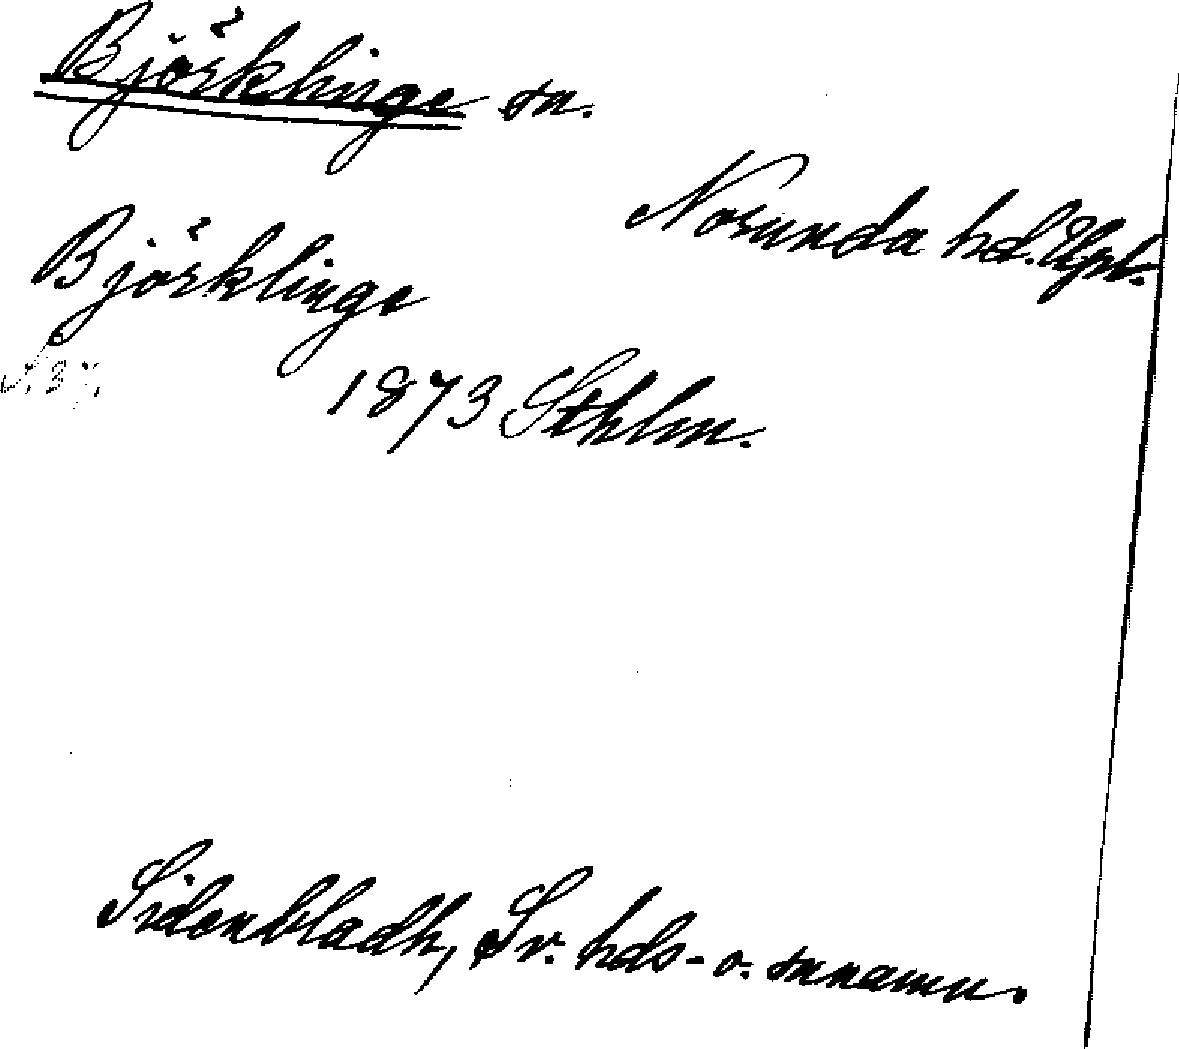 Björklinge sn.
Norunda hd. Upl.
Björklinge
1873 Sthlm.
Sidenbladh, Sv. hds- o. snnamn.